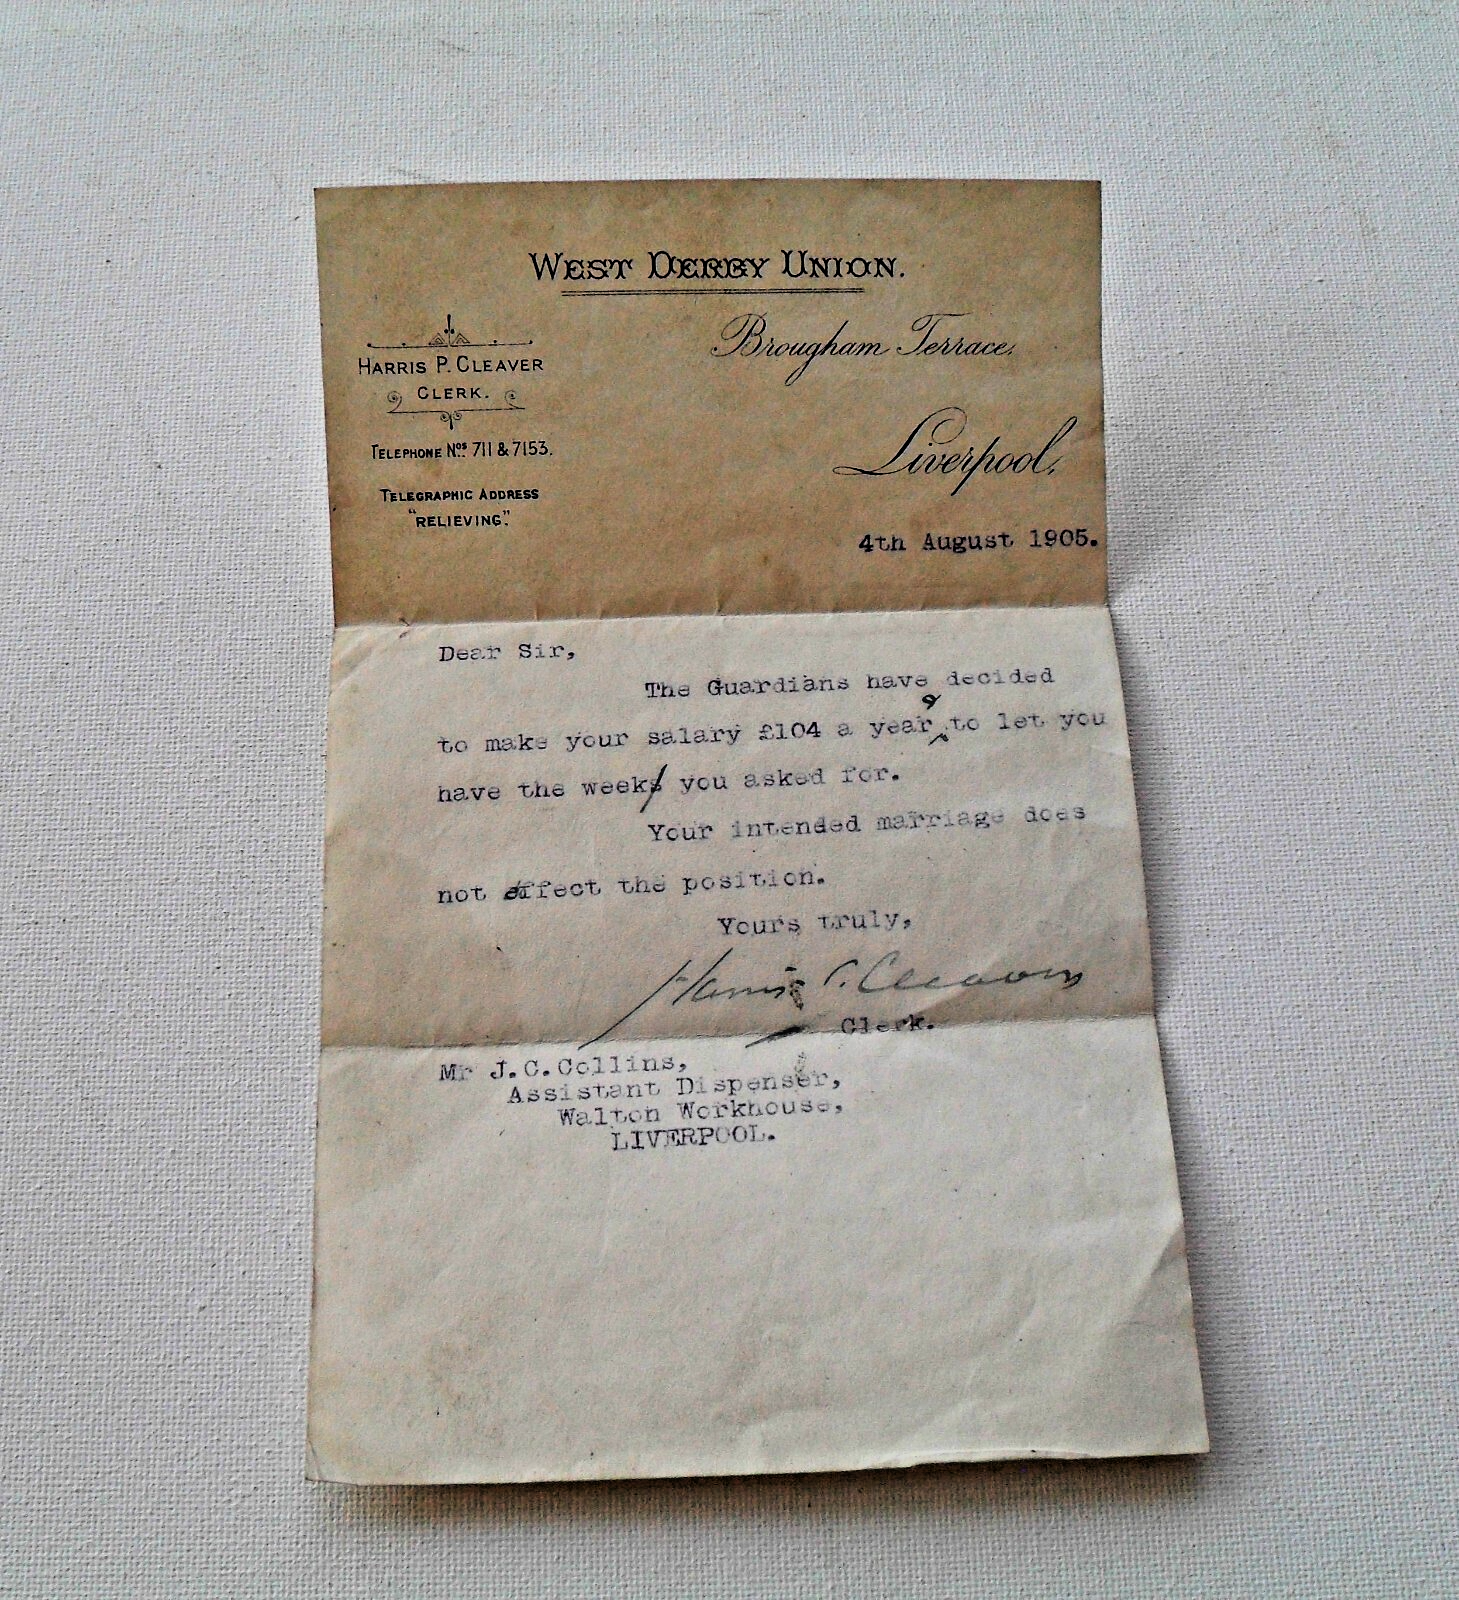 WEST DERBY UNION.
HARRIS P. CLEAVER
CLERK.
TELEPHONE Nos. 711 & 7153.
TELEGRAPHIC ADDRESS
"RELIEVING".
Brougham Terrace,
Liverpool,
4th August 1905.
Dear Sir,
The Guardians have decided
to make your salary £104 a year & to let you
have the week you asked for.
Your intended marriage does
not affect the position.
Yours truly,
Harris P. Cleaver
Clerk.
Mr J.C.Collins,
Assistant Dispenser,
Walton Workhouse,
LIVERPOOL.